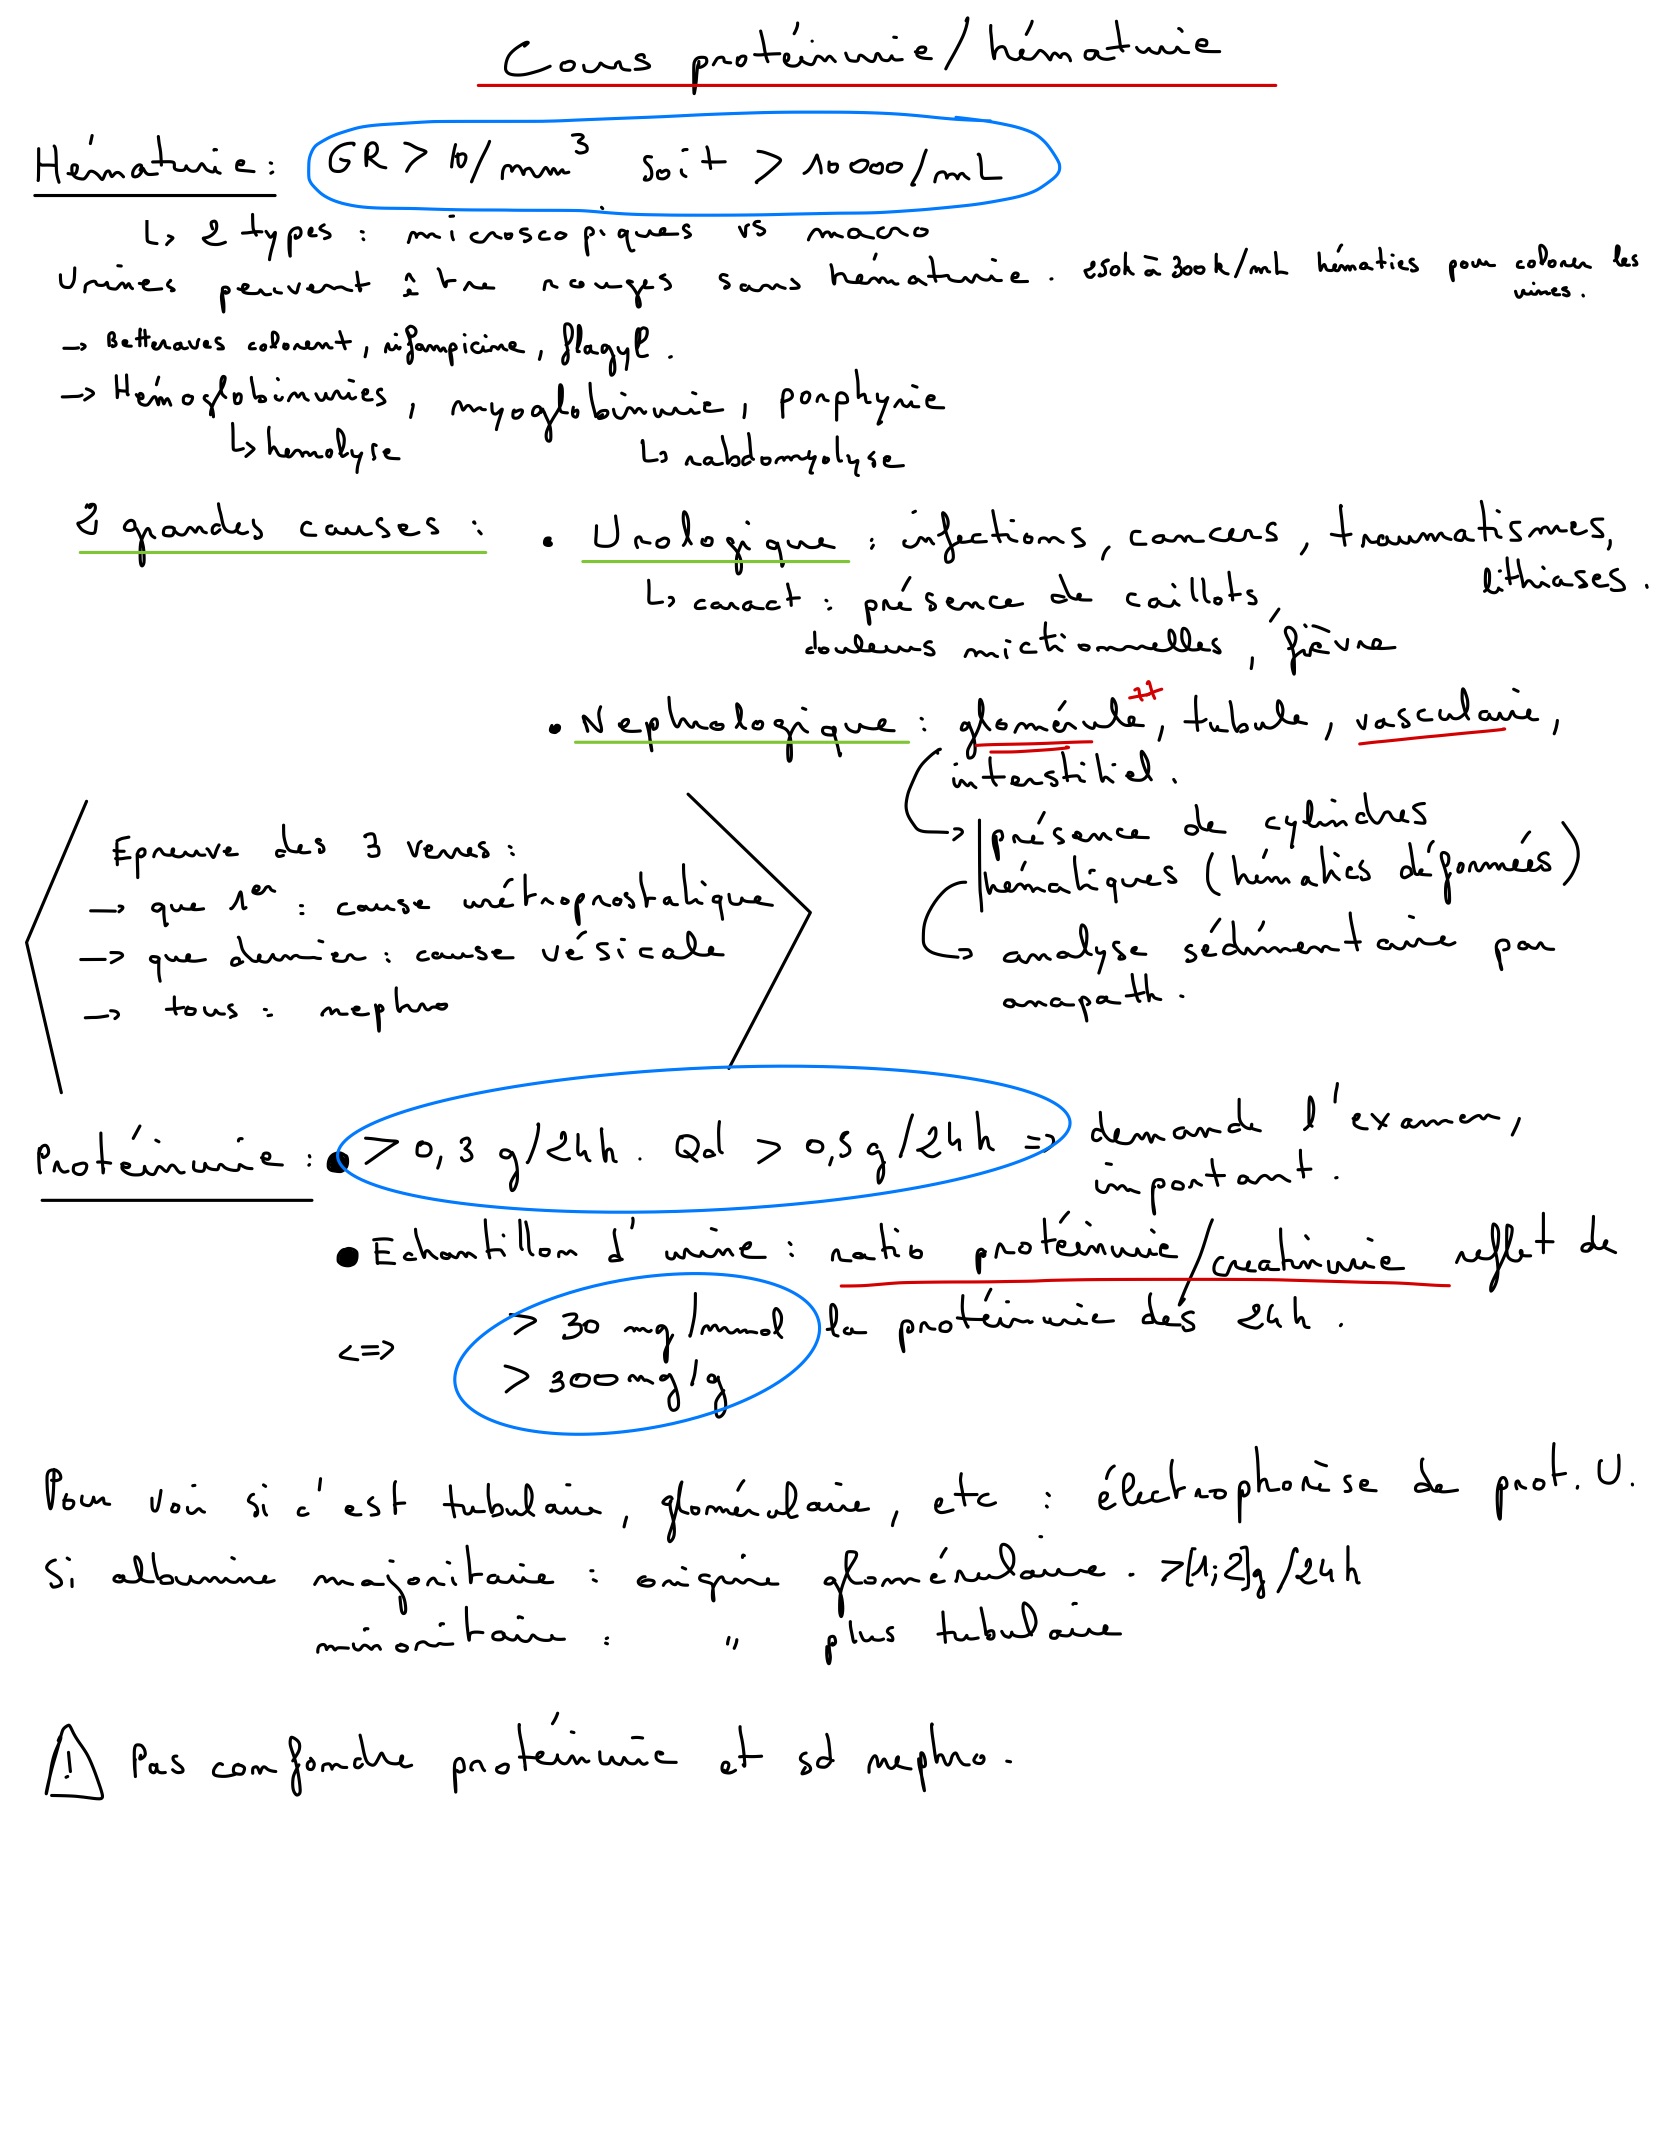 Cours protéinurie/hématurie
Hématurie : GR > 10/mm³ soit > 10 000/mL
↳ 2 types : microscopiques vs macro
Urines peuvent être rouges sans hématurie. 250k à 300k/mL hématies pour colorer les
urines.
→ Betteraves colorent, rifampicine, flagyl.
→ Hémoglobinuries, myoglobinurie, porphyrie
↳ hemolyse ↳ rabdomyolyse
2 grandes causes : • Urologique : infections, cancers, traumatismes,
lithiases.
↳ caract : présence de caillots,
douleurs mictionnelles, fièvre
• Nephrologique : glomérule ++, tubule, vasculaire,
interstitiel.
→ présence de cylindres
hématiques (hématies déformées)
→ analyse sédimentaire par
anapath.
Epreuve des 3 verres :
→ que 1er : cause urétroprostatique
→ que dernier : cause vésicale
→ tous : nephro
Protéinurie : • > 0,3 g/24h. Qd > 0,5g/24h => demande l'examen,
important.
• Echantillon d'urine : ratio protéinurie/creatinurie reflet de
la protéinurie des 24h.
<=> > 30 mg/mmol
> 300mg/g
Pour voir si c'est tubulaire, glomérulaire, etc : électrophorèse de prot. U.
Si albumine majoritaire : origine glomérulaire. >[1;2]g/24h
minoritaire : " plus tubulaire
! Pas confondre protéinurie et sd nephro.